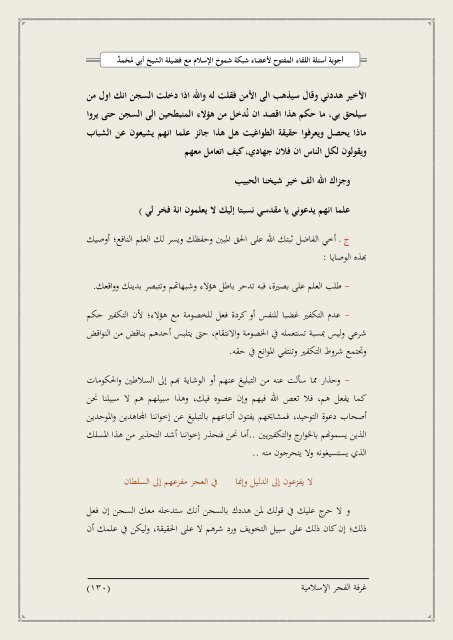 أجوبة أسئلة اللقاء المفتوح لأعضاء شبكة شموخ الإسلام مع فضيلة الشيخ أبي مُحمدٌ
الأخير هددني وقال سيذهب الى الأمن فقلت له والله اذا دخلت السجن انك اول من
سيلحق بي، ما حكم هذا اقصد ان نُدخل من هؤلاء المنبطحين الى السجن حتى يروا
ماذا يحصل ويعرفوا حقيقة الطواغيت هل هذا جائز علما انهم يشيعون عن الشباب
ويقولون لكل الناس ان فلان جهادي.كيف اتعامل معهم
وجزاك الله الف خير شيخنا الحبيب
علما انهم يدعوني يا مقدسي نسبتا إليك لا يعلمون انة فخر لي )
ج . أخي الفاضل ثبتك الله على الحق المبين وحفظك ويسر لك العلم النافع؛ أوصيك
بهذه الوصايا :
– طلب العلم على بصيرة، فبه تدحر باطل هؤلاء وشبهاتهم وتتبصر بدينك وواقعك.
– عدم التكفير غضبا للنفس أو كردة فعل للخصومة مع هؤلاء؛ لأن التكفير حكم
شرعي وليس بمسبة تستعمله في الخصومة والانتقام، حتى يتلبس أحدهم بناقض من النواقض
وتجتمع شروط التكفير وتنتفي الموانع في حقه.
– وحذار مما سألت عنه من التبليغ عنهم أو الوشاية بهم إلى السلاطين والحكومات
كما يفعل هم، فلا تعص الله فيهم وإن عصوه فيك، وهذا سبيلهم هم لا سبيلنا نحن
أصحاب دعوة التوحيد، فمشايخهم يفتون أتباعهم بالتبليغ عن إخواننا المجاهدين والموحدين
الذين يسمونهم بالخوارج والتكفيريين ..أما نحن فنحذر إخواننا أشد التحذير من هذا المسلك
الذي يستسيغونه ولا يتحرجون منه ..
لا يفزعون إلى الدليل وإنما في العجز مفزعهم إلى السلطان
و لا حرج عليك في قولك لمن هددك بالسجن أنك ستدخله معك السجن إن فعل
ذلك؛ إن كان ذلك على سبيل التخويف ورد شرهم لا على الحقيقة، وليكن في علمك أن
غرفة الفجر الإسلامية (١٣٠)